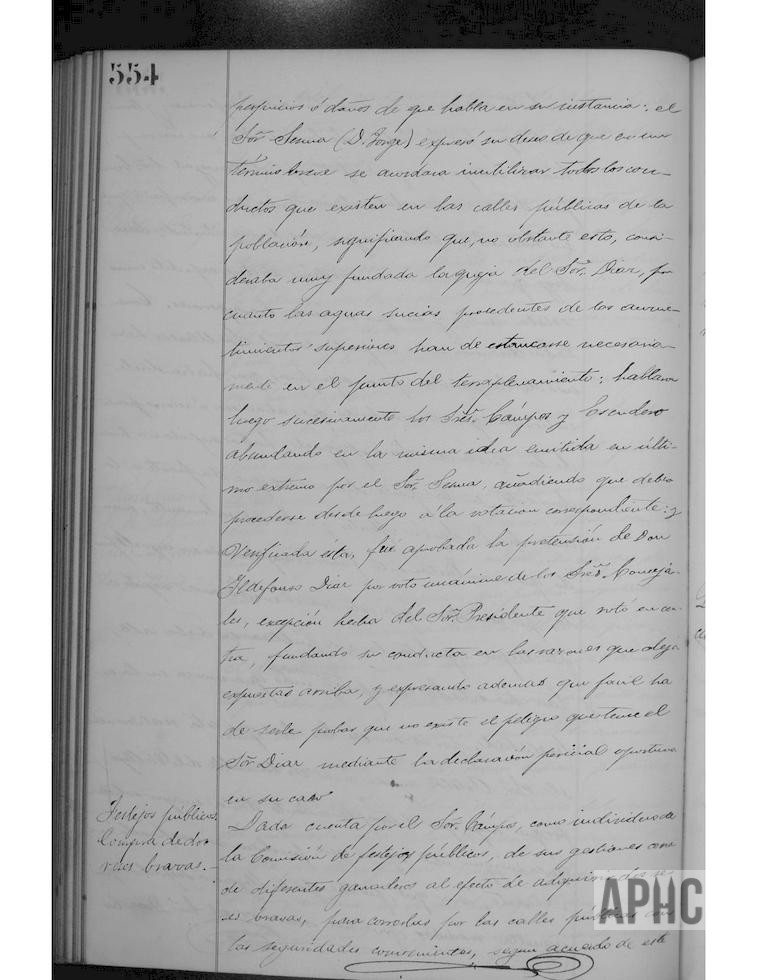 554
perjuicios ó daños de que habla en su instancia: el
Sor. Senra (D. Jorge) expresó su deseo de que en un
término breve se acordara inutilizar todos los con-
ductos que existen en las calles públicas de la
población, significando que, no obstante esto, consi-
deraba muy fundada la queja del Sor. Diaz, por
cuanto las aguas sucias procedentes de los acome-
timientos superiores han de estancarse necesaria-
mente en el punto del terraplenamiento: hablaron
luego sucesivamente los Sres. Cámpos y Escudero
abundando en la misma idea emitida en últi-
mo extremo por el Sor. Senra, añadiendo que debia
procederse desde luego á la votacion correspondiente: y
verificada ésta, fué aprobada la pretensión de Don
Ildefonso Diaz por voto unánime de los Sres. Conceja-
les, excepción hecha del Sor. Presidente que votó en con-
tra, fundando su conducta en las razones que deja
expuestas arriba, y expresando además que fácil ha
de serle probar que no existe el peligro que teme el
Sor. Diaz mediante la declaración pericial oportuna
en su caso
Festejos públicos.
Compra de dos
reses bravas.
Dada cuenta por el Sor. Cámpos, como individuo de
la Comisión de festejos públicos, de sus gestiones cerca
de diferentes ganaderos al efecto de adquirir dos re-
ses bravas, para correrlas por las calles públicas con
las seguridades convenientes, segun acuerdo de este
APHC